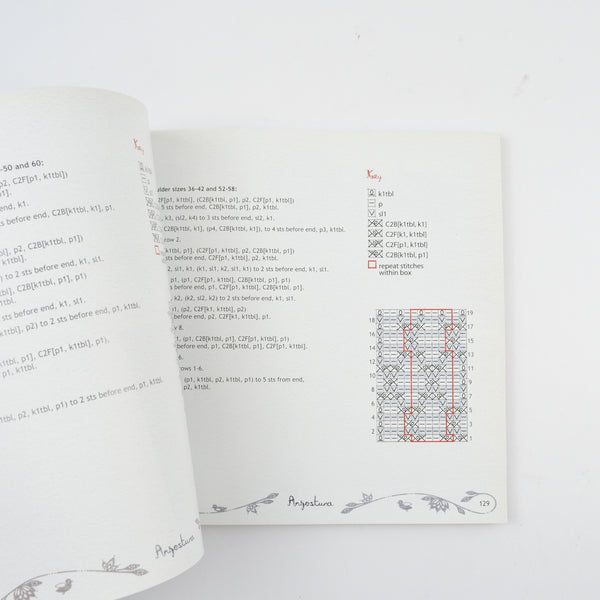 -50 and 60:
p2, C2F[p1, k1tbl])
p1].
end, k1.
s before end, C2B[k1tbl, k1], p1.
k1tbl], p2, C2B[k1tbl, p1])
1tbl.
) to 2 sts before end, k1, sl1.
l, p1], C2F[p1, k1tbl])
tbl.
s before end, k1, sl1.
l], p2) to 2 sts before end, p1, k1tbl.
tbl, p1], C2F[p1, k1tbl], p1),
p1, k1tbl.
tbl, p2, k1tbl, p1) to 2 sts before end, p1, k1tbl.
Angostura
Key
ulder sizes 36-42 and 52-58:
2F[p1, k1tbl], (C2B[k1tbl, p1], p2, C2F[p1, k1tbl])
5 sts before end, C2B[k1tbl, p1], p2, k1tbl.
, k3, (sl2, k4) to 3 sts before end, sl2, k1.
k1tbl, k1], (p4, C2B[k1tbl, k1]), to 4 sts before end, p3, k1tbl.
row 2.
k1tbl, p1], (p1, C2F[p1, k1tbl], p2, C2B[k1tbl, p1])
2, sl1, k1, (k1, sl1, k2, sl1, k1) to 2 sts before end, k1, sl1.
p1, (p1, C2F[p1, k1tbl], C2B[k1tbl, p1], p1)
, k2, (k2, sl2, k2) to 2 sts before end, k1, sl1.
p1, (p2, C2F[k1, k1tbl], p2)
efore end, p2, C2F[k1, k1tbl], p1.
x 8.
1, (p1, C2B[k1tbl, p1], C2F[p1, k1tbl], p1)
before end, p1, C2B[k1tbl, p1], C2F[p1, k1tbl].
-6.
rows 1-6.
(p1, k1tbl, p2, k1tbl, p1) to 5 sts from end,
, p2, k1tbl.
Key
k1tbl
p
sl1
C2B[k1tbl, k1]
C2F[k1, k1tbl]
C2F[p1, k1tbl]
C2B[k1tbl, p1]
repeat stitches
within box
19
18
17
16
15
14
13
12
11
10
9
8
7
6
5
4
3
2
1
Angostura
129